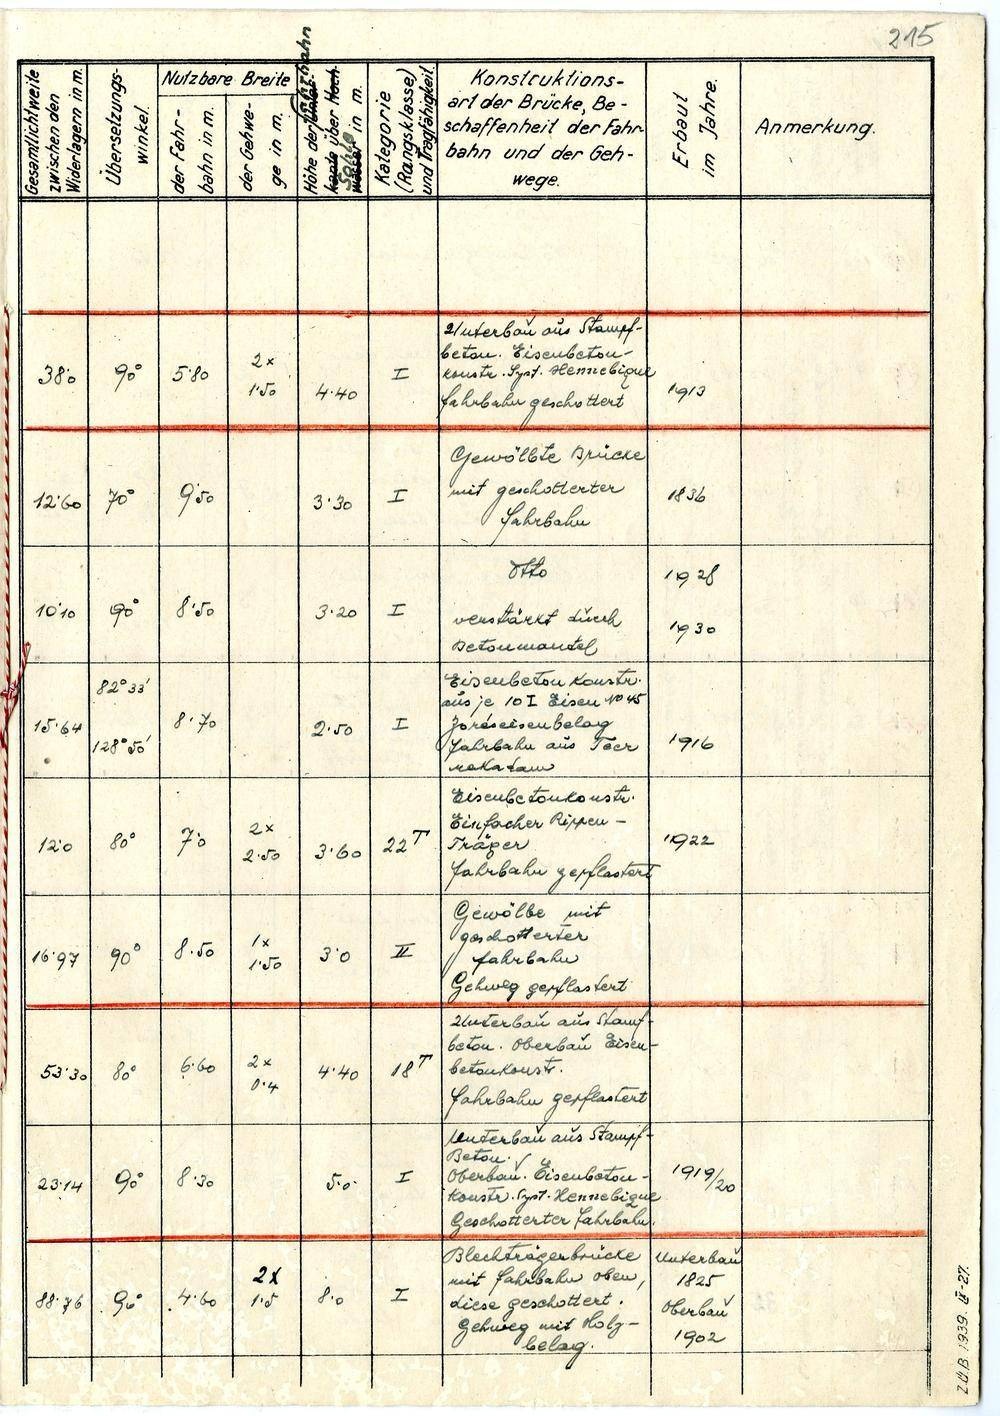 215
Gesamtlichtweite
zwischen den
Widerlagern in m.
Übersetzungs-
winkel.
Nutzbare Breite
der Fahr-
bahn in m.
der Gehwe-
ge in m.
Fahrbahn
Höhe der Unter-
kante über Hoch-
Sohle
wasser in m.
Kategorie
(Rangsklasse)
und Tragfähigkeit.
Konstruktions-
art der Brücke, Be-
schaffenheit der Fahr-
bahn und der Geh-
wege.
Erbaut
im Jahre.
Anmerkung.
38·0
90°
5·80
2x
1·50
4·40
I
Unterbau aus Stampf-
beton. Eisenbeton-
konstr. Syst. Hennebique
Fahrbahn geschottert
1913
12·60
70°
9·50
3·30
I
Gewölbte Brücke
mit geschotterter
Fahrbahn
1836
10·10
90°
8·50
3·20
I
Otto
verstärkt durch
Betonmantel
1928
1930
15·64
82°33'
128°50'
8·70
2·50
I
Eisenbeton Konstr.
aus je 10 I Eisen No 45
Zoréseisenbelag
Fahrbahn aus Teer
makadam
1916
12·0
80°
7·0
2x
2·50
3·60
22T
Eisenbetonkonstr.
Einfacher Rippen-
Träger
Fahrbahn gepflastert
1922
16·97
90°
8·50
1x
1·50
3·0
II
Gewölbe mit
geschotterter
Fahrbahn
Gehweg gepflastert
53·30
80°
6·60
2x
0·4
4·40
18T
Unterbau aus Stampf-
beton. Oberbau Eisen-
betonkonstr.
Fahrbahn gepflastert
23·14
90°
8·30
5·0
I
Unterbau aus Stampf-
Beton.
Oberbau. Eisenbeton-
konstr. Syst. Hennebique
Geschotterter Fahrbahn.
1919/20
88·76
90°
4·60
2x
1·5
8·0
I
Blechträgerbrücke
mit Fahrbahn oben,
diese geschottert.
Gehweg mit Holz-
belag.
Unterbau
1825
Oberbau
1902
Z.Ü.B. 1939. IX-27.